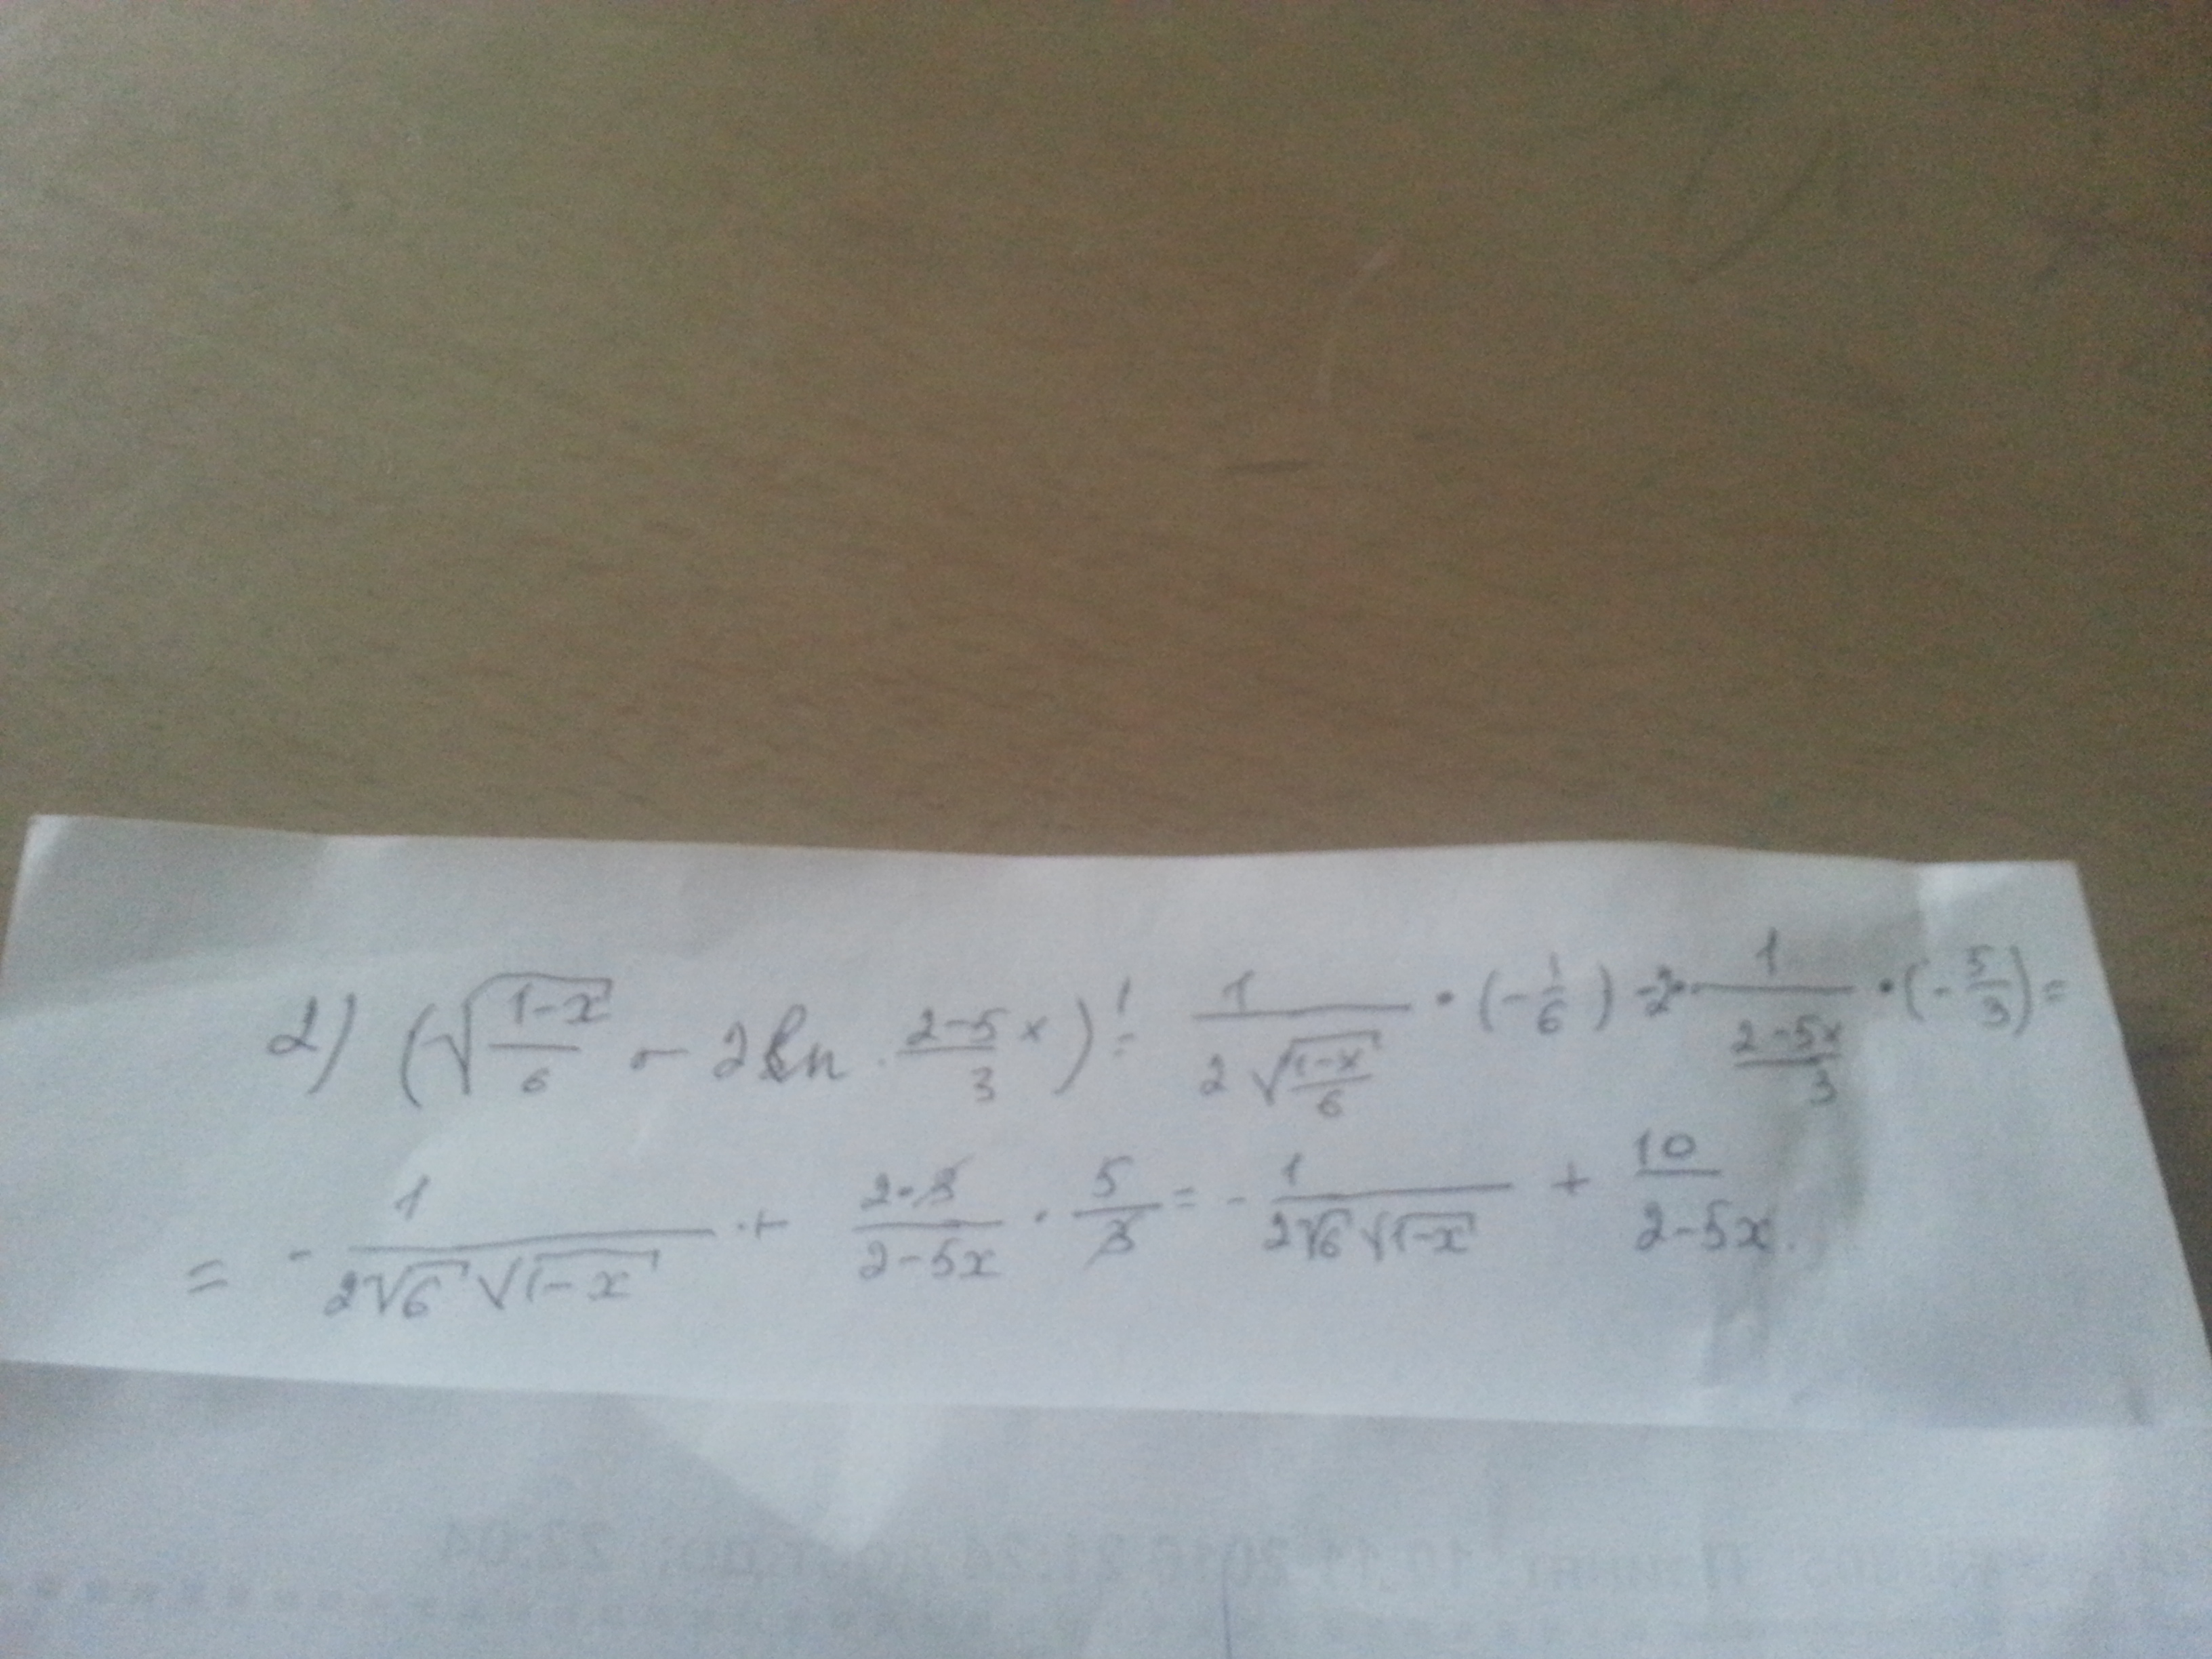 2) (√((1-x)/6) - 2ln (2-5x)/3)' = 1/(2√((1-x)/6)) · (-1/6) - 2 · 1/((2-5x)/3) · (-5/3) =
= - 1/(2√6 √(1-x)) + (2·3)/(2-5x) · 5/3 = - 1/(2√6 √(1-x)) + 10/(2-5x).